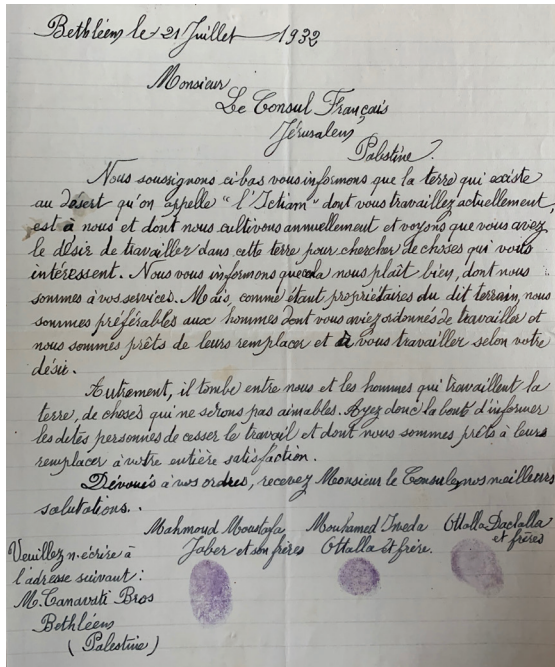 Bethléem le 21 Juillet 1932
Monsieur
Le Consul Français
Jérusalem,
Palestine.
Nous soussignons ci-bas vous informons que la terre qui existe
au désert qu'on appelle "l'Ictiam" dont vous travaillez actuellement,
est à nous et dont nous cultivons annuellement et voyons que vous avez
le désir de travailler dans cette terre pour chercher de choses qui vous
intéressent. Nous vous informons que cela nous plaît bien, dont nous
sommes à vos services. Mais, comme étant propriétaires du dit terrain, nous
sommes préférables aux hommes dont vous aviez ordonnés de travailler et
nous sommes prêts de leurs remplacer et à vous travailler selon votre
désir.
Autrement, il tombe entre nous et les hommes qui travaillent la
terre, de choses qui ne serons pas aimables. Ayez donc la bonté d'informer
les dites personnes de cesser le travail et dont nous sommes prêts à leurs
remplacer à votre entière satisfaction.
Dévoués à vos ordres, recevez Monsieur le Consul, nos meilleurs
salutations..
Mahmoud Moustafa Mouhamed Imeda Ottalla Dactalla
Jaber et son frères Ottalla et frère. et frères
Veuillez n. écrire à
l'adresse suivant:
M. Canavati Bros
Bethléem
(Palestine)